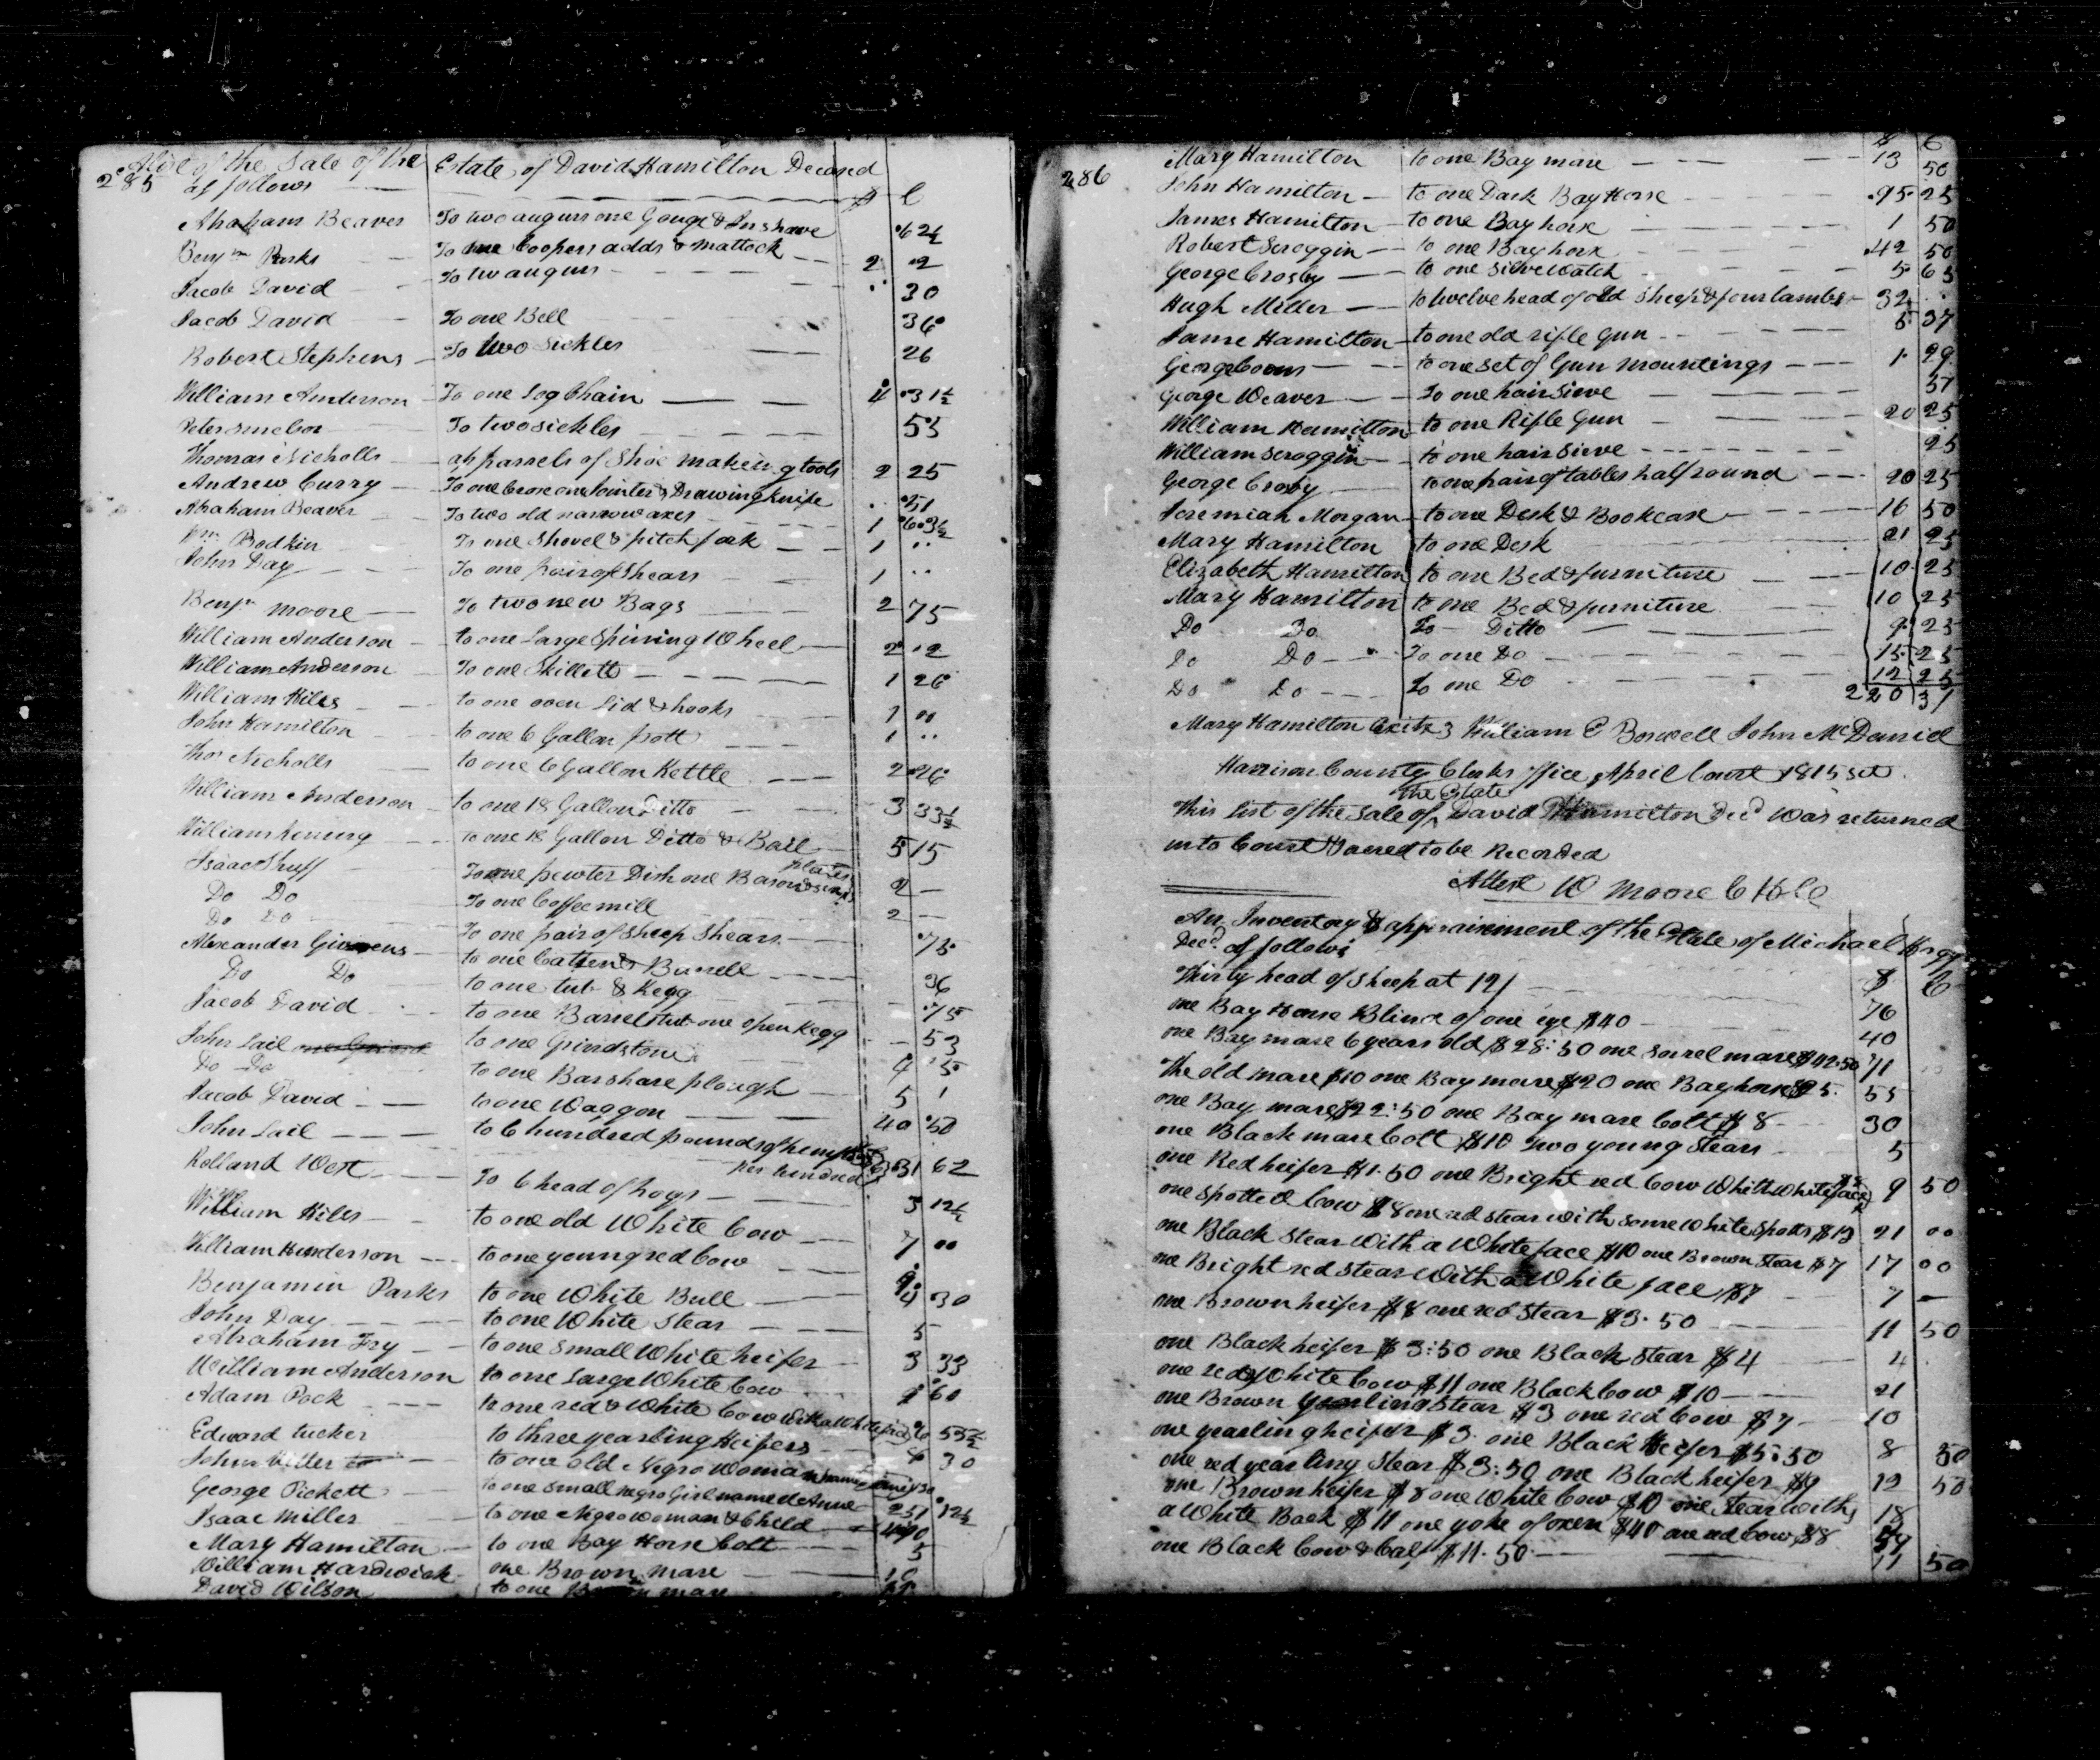 A list of the Sale of the Estate of David Hamilton Deceased
285 as follows $ C
Abraham Beaver To two augurs one Gouge & Inshave .62½
Benjn Parks To one Coopers adds & mattock 2 .2
Jacob David To two augurs 30
Jacob David To one Bell 36
Robert Stephens To two Sickles 26
William Anderson To one Log Chain 4 .31½
Peter To two sickles 53
Thomas Nicholls a parsels of Shoe making tools 2 25
Andrew Curry To one one Jointer & Drawing knife .51
Abraham Beaver To two old narrow axes 1 63½
Wm Bodkin To one Shovel & pitch fork 1 ..
John Day To one pair of Shears 1 ..
Benjn Moore To two new Bags 2 75
William Anderson to one Large Spining Wheel 2 .2
William Anderson To one Skillett 1 26
William Hiles to one oven Lid & hooks 1 00
John Hamilton to one 6 Gallon pott 1 ..
Thos Nicholls to one 6 Gallon Kettle 2 26
William Anderson to one 18 Gallon Ditto 3 33½
William to one 18 Gallon Ditto & Bail 5 15
Isaac Shuff To one pewter Dish one Bason & six plates 2 —
Do Do To one Coffee mill 2 —
Do Do To one pair of Sheep Shears .75
Alexander Givvens to one & Burrell 36
Do Do to one tub & Kegg .75
Jacob David to one Barrel tub one open Kegg 53
John Lail to one Grindstone 4 .5
Do Do to one Barshare plough 5 1
Jacob David to one Waggon 40 .50
John Lail to 6 hundred pounds of hemp
per hundred 31 62
Rolland West To 6 head of hogs 3 12½
William Hiles to one old White Cow 7 00
William Henderson to one young red Cow 9
Benjamin Parks to one White Bull 4 30
John Day to one White Stear 5
Abraham Fry to one Small White heifer 3 33
William Anderson to one Large White Cow 9 60
Adam Pock to one red & White Cow with a White face 55½
Edward tucker to three yearling Heifers 30
John Miller to one old Negro Woman named
George Pickett to one small negro Girl named Anne 251 12½
Isaac Miller to one Negro woman & Child 440
Mary Hamilton to one Bay Horse Colt 5
William Hardwick one Brown mare 10
David Wilson to one Brown mare
286
$ C
Mary Hamilton to one Bay mare 13 50
John Hamilton to one Dark Bay Horse .95. 25
James Hamilton to one Bay horse 1 50
Robert Scroggin to one Bay horse 42 50
George Crosby to one Silve Watch 5 63
Hugh Miller to twelve head of old Sheep & four lambs 32 .
Jame Hamilton to one old rifle Gun 5 37
George Coons to one set of Gun mountings 1 29
George Weaver To one hair Sieve 57
William Hamilton to one Rifle Gun 20 25
William Scroggin to one hair Sieve 25
George Crosby to one pair of tables half round 20 25
Jeremiah Morgan to one Desk & Bookcase 16 50
Mary Hamilton to one Desk 21 25
Elizabeth Hamilton to one Bed & furniture 10 25
Mary Hamilton to one Bed & furniture 10 25
Do Do To Ditto 9 25
Do Do To one Do 15 25
Do Do To one Do 12 25
220 31
Mary Hamilton William E Boswell John McDaniel
Harrison County Clerks office April Court 1815 Sct.
the Estate
This List of the Sale of David Hamilton Decd was returned
into Court & ordred to be Recorded
Attest W Moore C H C
An Inventory & appraisement of the Estate of Michael
Decd as follows
$ C
Thirty head of Sheep at 12/ 76
one Bay Horse Blind of one eye $40 40
one Bay mare 6 years old $28:50 one Sorrel mare $42.50 71
The old mare $10 one Bay mare $20 one Bay horse $25. 55
one Bay mare $22:50 one Bay mare Colt $8 30
one Black mare Colt $10 Two young Stears 5
one Red heifer $1.50 one Bright red Cow With White face $8 9 50
one Spotted Cow $8 one red stear with some White Spotts $13 21 00
one Black Stear With a White face $10 one Brown Stear $7 17 00
one Bright red stear With a White face $7 7 —
one Brown heifer $8 one red Stear $3.50 11 50
one Black heifer $3:50 one Black Stear $4 4 .
one red & White Cow $11 one Black Cow $10 21
one Brown yearling Stear $3 one red Cow $7 10
one yearling heifer $3 one Black Heifer $5:50 8 50
one red yearling Stear $3:50 one Black heifer $9 12 50
one Brown heifer $8 one White Cow $10 one Stear with 18
a White Back $11 one yoke of oxen $40 one red Cow $8 59
one Black Cow & Calf $11.50. 11 50